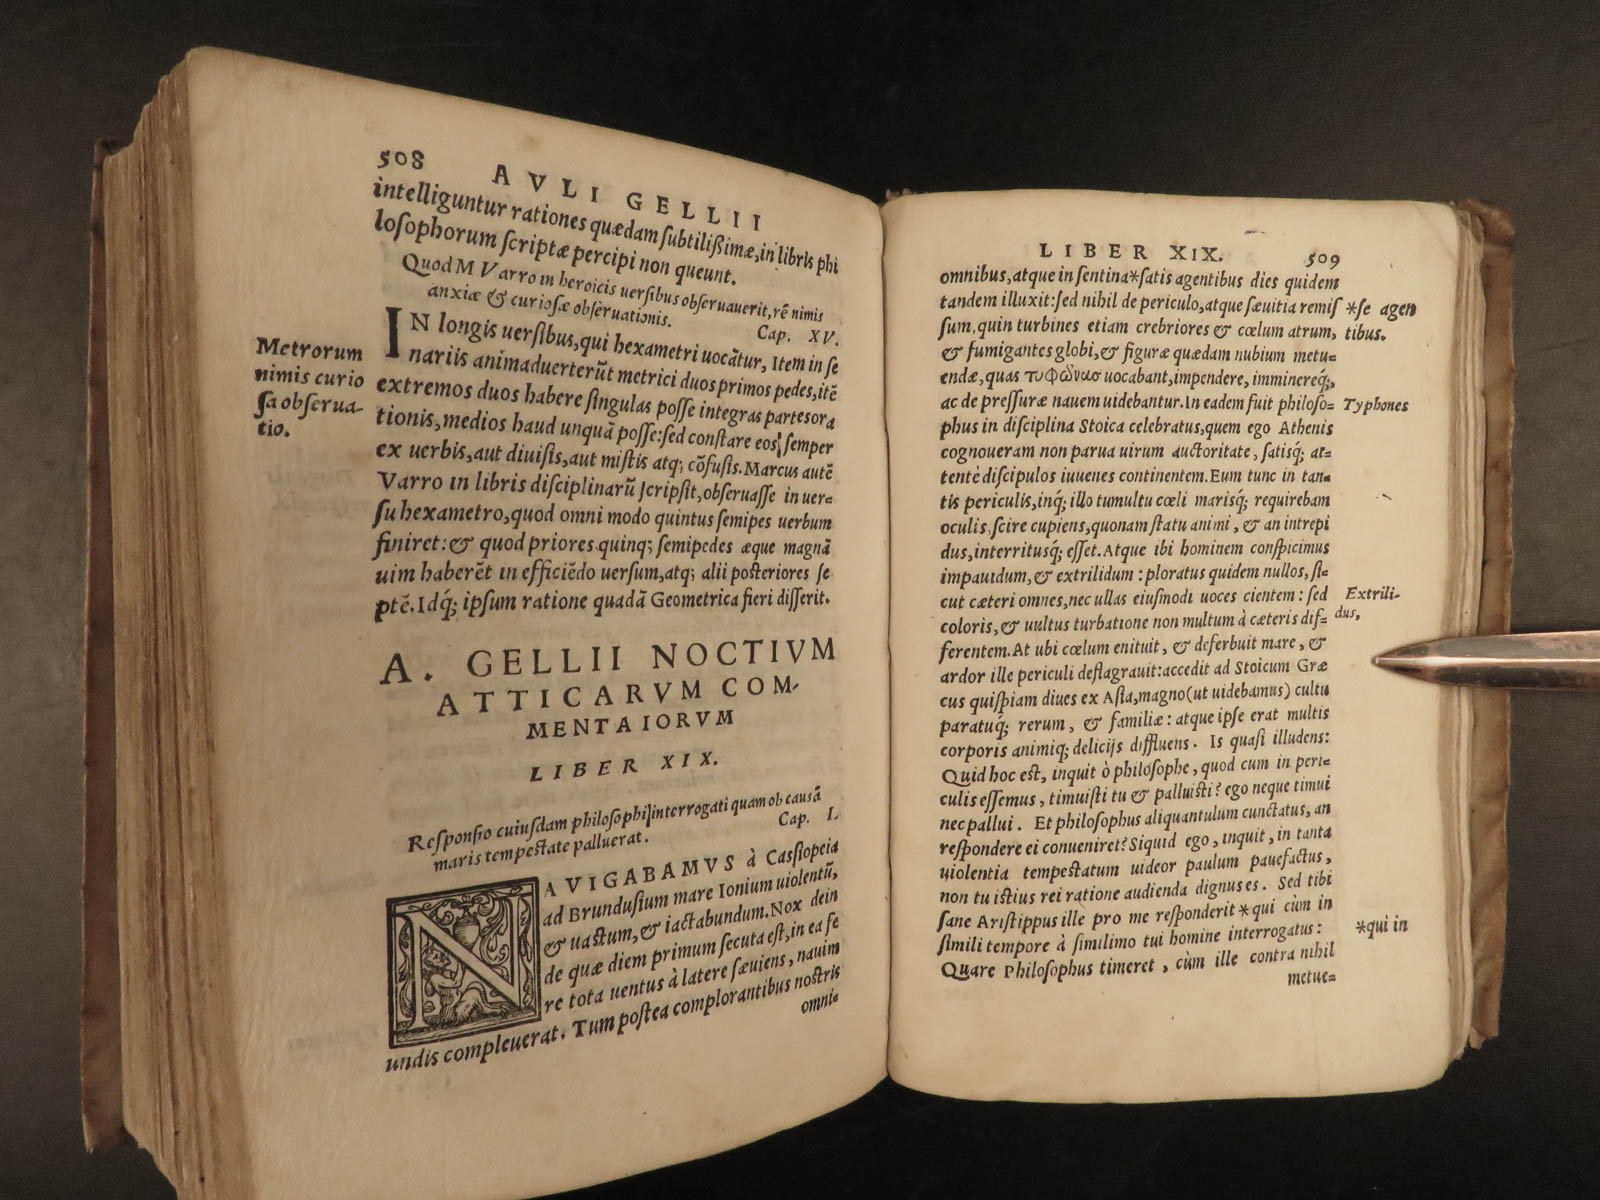 508
AVLI GELLII
intelliguntur rationes quædam subtilißimæ, in libris phi
losophorum scriptæ percipi non queunt.
Quod M Varro in heroicis uersibus obseruauerit, rē nimis
anxiæ & curiosæ obseruationis. Cap. XV.
IN longis uersibus, qui hexametri uocātur, Item in se
nariis animaduerterūt metrici duos primos pedes, itē
extremos duos habere singulas posse integras partes ora
tionis, medios haud unquā posse: sed constare eos semper
ex uerbis, aut diuisis, aut mistis atq; cōfusis. Marcus autē
Varro in libris disciplinarū scripsit, obseruasse in uer=
su hexametro, quod omni modo quintus semipes uerbum
finiret: & quod priores quinq; semipedes æque magnā
uim haberēt in efficiēdo uersum, atq; alii posteriores se
ptē. Idq; ipsum ratione quadā Geometrica fieri disserit.
Metrorum
nimis curio
sa obserua-
tio.
A. GELLII NOCTIVM
ATTICARVM COM-
MENTAIORVM
LIBER XIX.
Responsio cuiusdam philosophi interrogati quam ob causā
maris tempestate palluerat. Cap. I.
NAVIGABAMVS à Cassiopeia
ad Brundusium mare Ionium uiolentū,
& uastum, & iactabundum. Nox dein
de quæ diem primum secuta est, in ea fe
re tota uentus à latere sæuiens, nauim
undis compleuerat. Tum postea complorantibus nostris
omni=
LIBER XIX.
509
omnibus, atque in sentina*satis agentibus dies quidem
tandem illuxit: sed nihil de periculo, atque sæuitia remis
sum, quin turbines etiam crebriores & cœlum atrum,
& fumigantes globi, & figuræ quædam nubium metu=
endæ, quas τυφῶνασ uocabant, impendere, imminereq;,
ac depressuræ nauem uidebantur. In eadem fuit philoso=
phus in disciplina Stoica celebratus, quem ego Athenis
cognoueram non parua uirum auctoritate, satisq; at=
tentè discipulos iuuenes continentem. Eum tunc in tan=
tis periculis, inq; illo tumultu cœli marisq; requirebam
oculis, scire cupiens, quonam statu animi, & an intrepi
dus, interritusq; esset. Atque ibi hominem conspicimus
impauidum, & extrilidum: ploratus quidem nullos, si=
cut cæteri omnes, nec ullas eiusmodi uoces cientem: sed
coloris, & uultus turbatione non multum à cæteris dif=
ferentem. At ubi cœlum enituit, & deferbuit mare, &
ardor ille periculi deflagrauit: accedit ad Stoicum Græ
cus quispiam diues ex Asia, magno (ut uidebamus) cultu
paratuq; rerum, & familiæ: atque ipse erat multis
corporis animiq; delicijs diffluens. Is quasi illudens:
Quid hoc est, inquit ò philosophe, quod cum in peri=
culis essemus, timuisti tu & palluisti? ego neque timui
nec pallui. Et philosophus aliquantulum cunctatus, an
respondere ei conueniret? Siquid ego, inquit, in tanta
uiolentia tempestatum uideor paulum pauefactus,
non tu istius rei ratione audienda dignus es. Sed tibi
sane Aristippus ille pro me responderit *qui cùm in
simili tempore à simillimo tui homine interrogatus:
Quare Philosophus timeret, cùm ille contra nihil
metue=
*se agen
tibus.
Typhones
Extrili-
dus,
*qui in